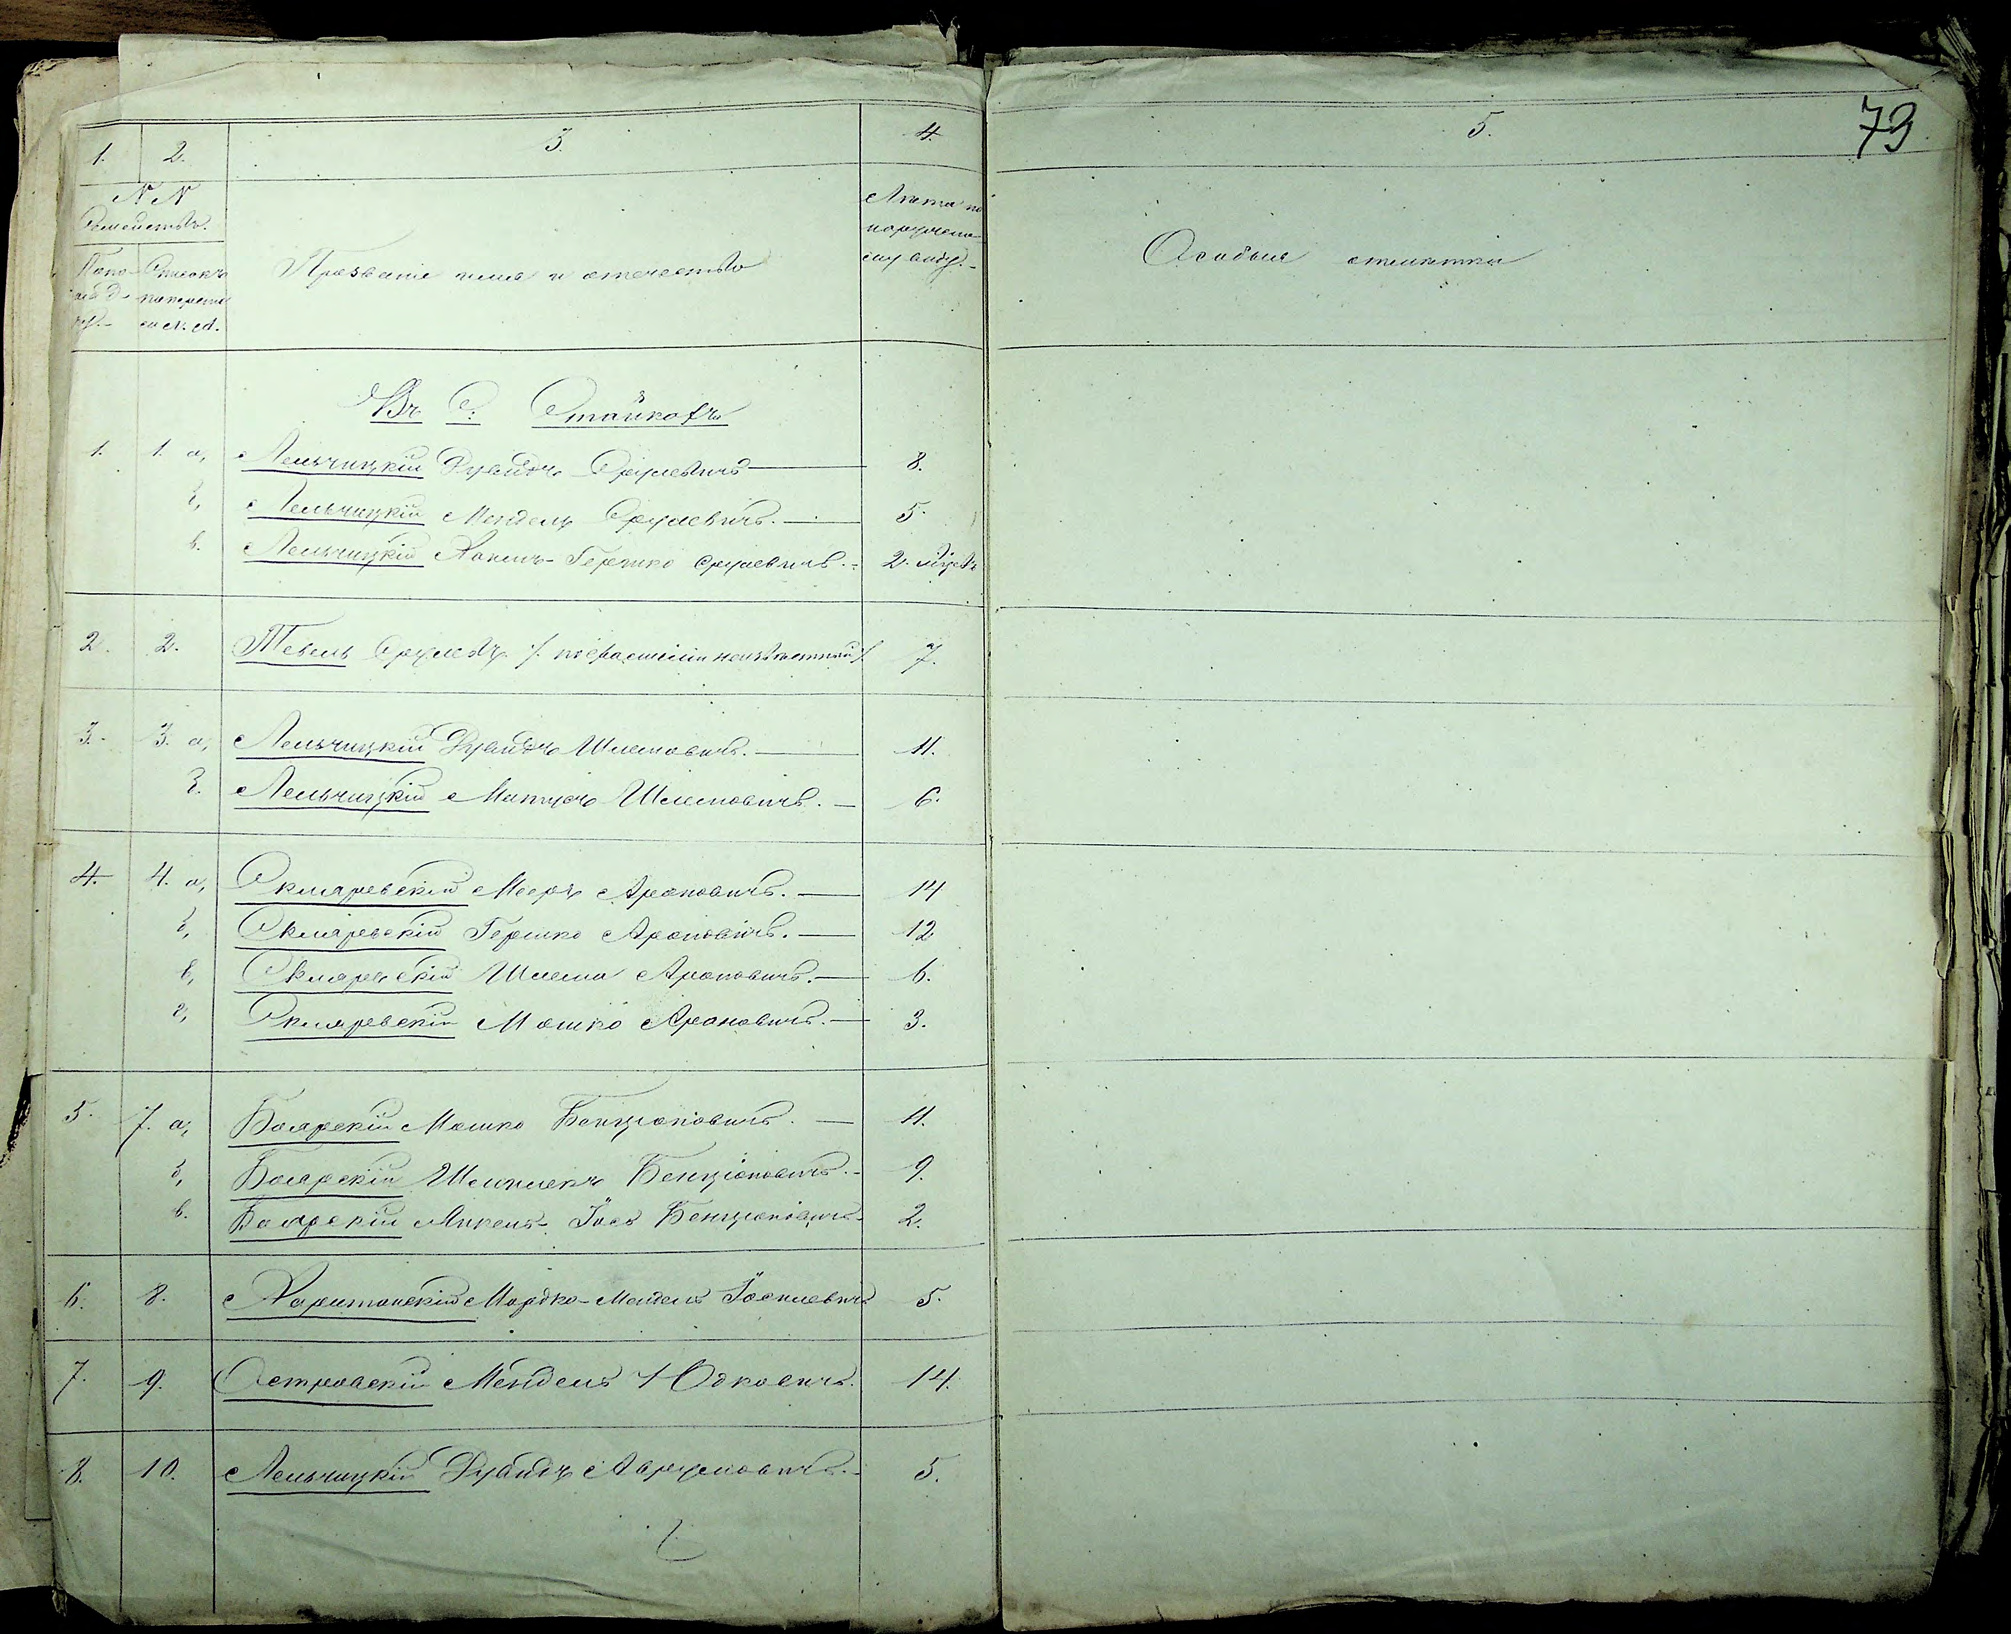 1. 2. 3. 4. 5. 73
№ №
Семействъ.
Лѣта по
наружно-
му виду.
Прозваніе имя и отечество
Особыя отмѣтки
Въ С: Стайкахъ
1. 1. а, Лельчицкій Дувидъ Срулевичъ 8.
б, Лельчицкій Мендель Срулевичъ. 5.
в. Лельчицкій Хаимъ-Гершко Срулевичъ. 2. мѣся
2. 2. Тевель Срулевъ /: по фамиліи неизвѣстный :/ 7.
3. 3. а, Лельчицкій Дувидъ Шлемовичъ. 11.
б. Лельчицкій Матусъ Шлемовичъ. 6.
4. 4. а, Скляревскій Мееръ Ароновичъ. 14
б, Скляревскій Гершко Ароновичъ. 12
в, Скляревскій Шлема Ароновичъ. 6.
г, Скляревскій Мошко Ароновичъ. 3.
5. 7. а, Боярскій Мошко Бенціоновичъ. 11.
б, Боярскій Шмилекъ Бенціоновичъ. 9.
в. Боярскій Янкель-Іось Бенціоновичъ. 2.
6. 8. Харитонскій Мордко-Мендель Іоселевичъ 5.
7. 9. Островскій Мендель Юдковичъ. 14.
8. 10. Лельчицкій Дувидъ Аврумовичъ. 5.